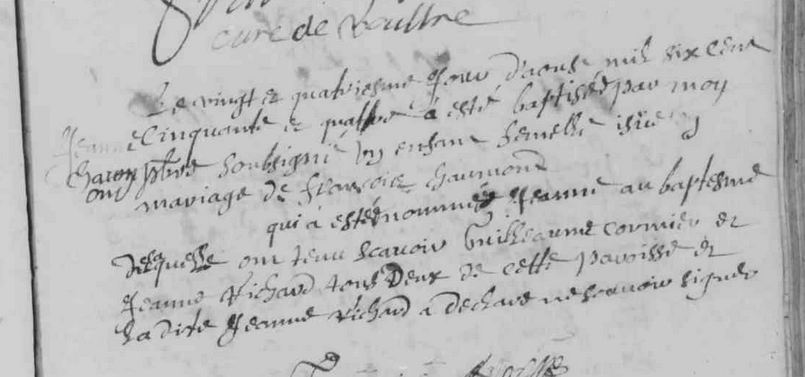 curé de Voultre
Le vingt et quatriesme Jour d'aoust mil six cent
Cinquante et quattre a esté baptisée par moy
Jeanne
prbre soubsigné Un enfant femelle issüe
mariage de françois haumond
qui a esté nommée Jeanne au baptesme
delaquelle ont tenu scavoir Guilleaume cormier et
Jeanne Richard tous Deux de cette paroisse et
Ladite Jeanne Richard a declaré ne scavoir signer